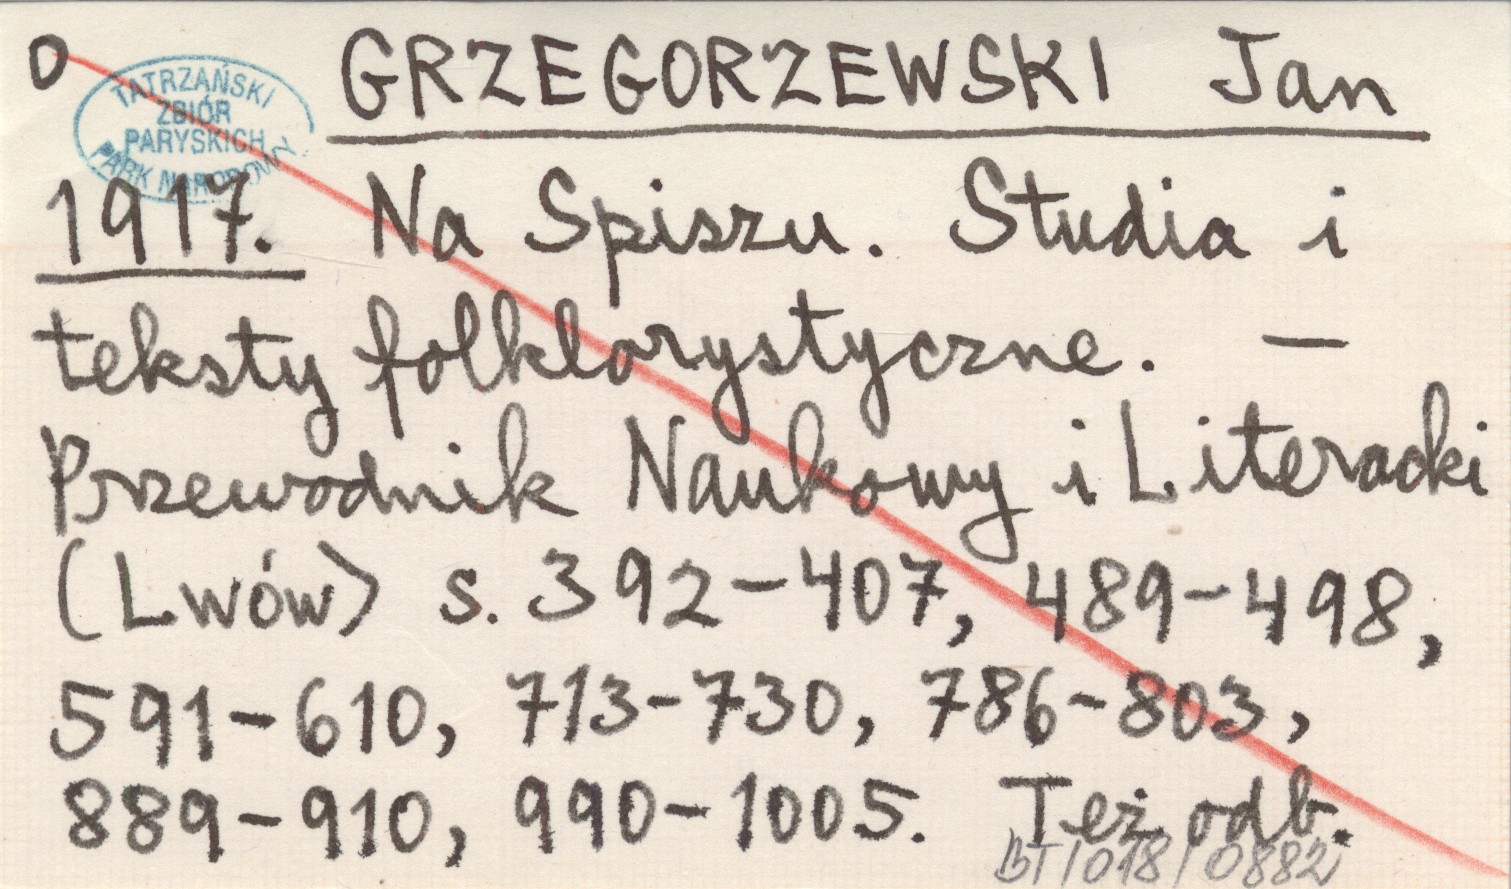 O
GRZEGORZEWSKI Jan
TATRZAŃSKI
ZBIÓR
PARYSKICH
PARK NARODOWY
1917. Na Spiszu. Studia i
teksty folklorystyczne. —
Przewodnik Naukowy i Literacki
(Lwów) s. 392-407, 489-498,
591-610, 713-730, 786-803,
889-910, 990-1005. Też odb.
BT/018/0882